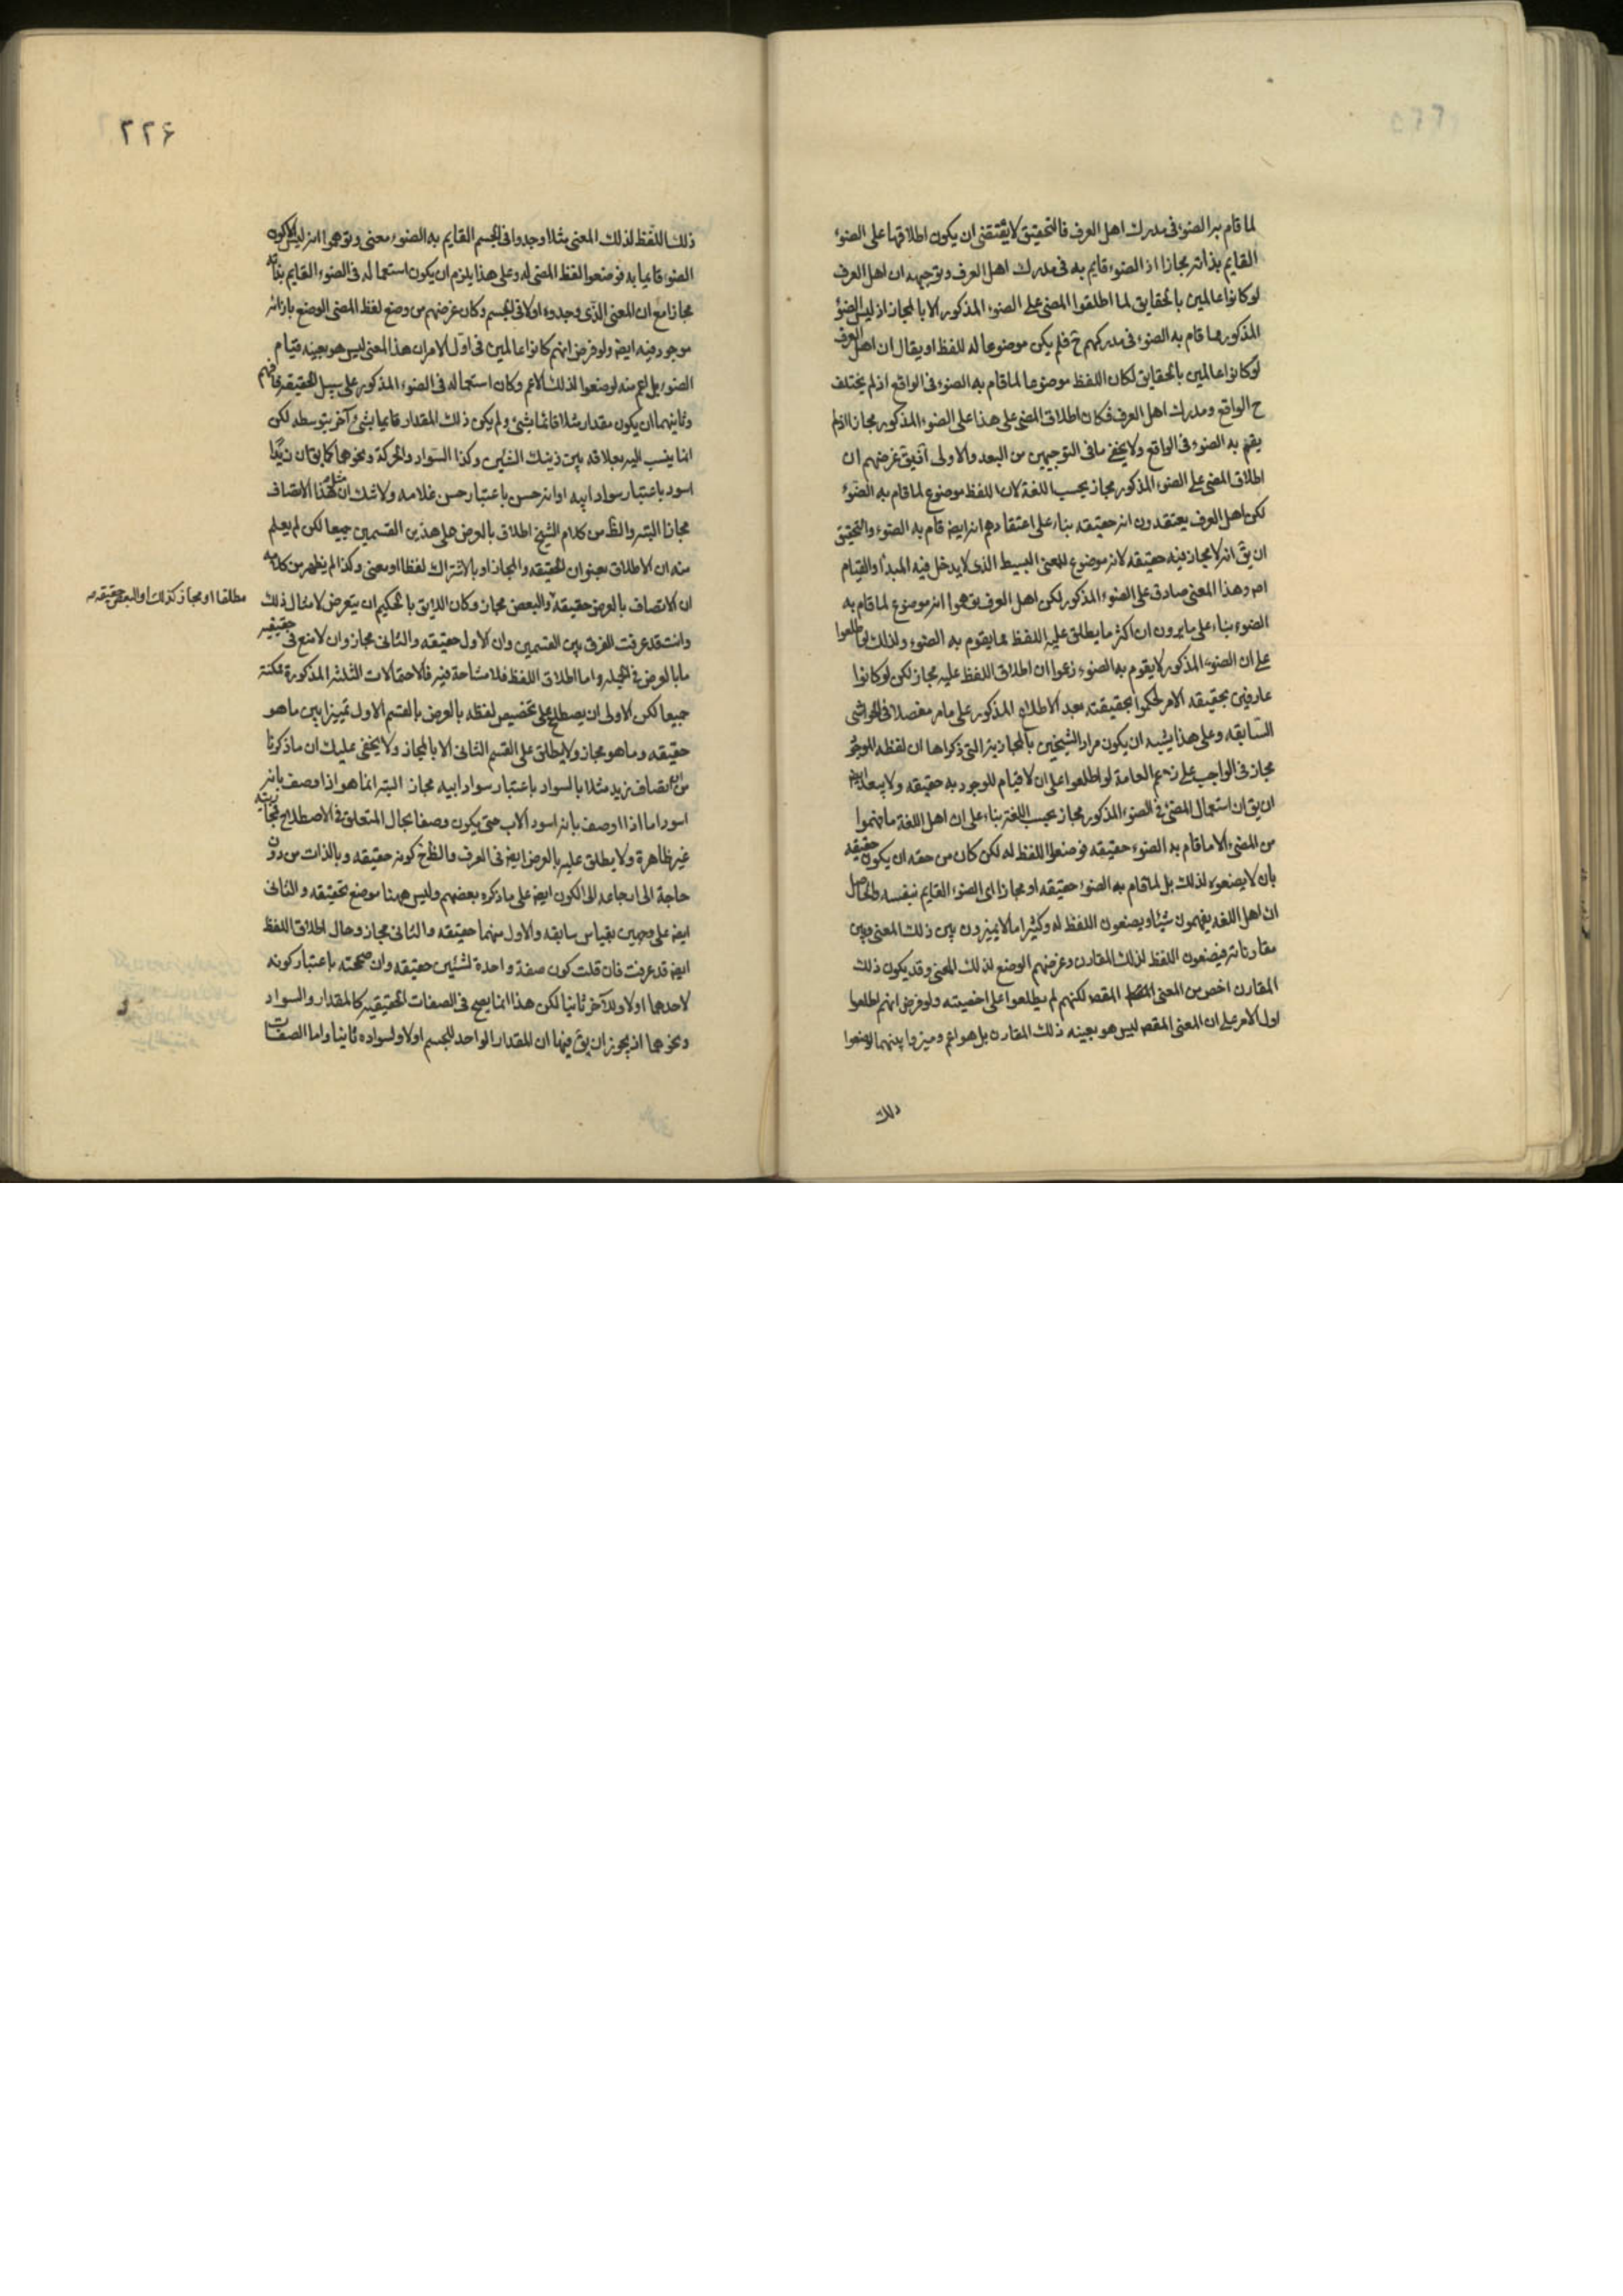 لما قام به الضوء فى مدرك اهل العرف فالتحقيق لا يقتضى ان يكون اطلاقها على الضوء
القايم بذاته مجازا اذ الضوء قايم به فى مدرك اهل العرف وتوجيهه ان اهل العرف
لو كانوا عالمين بالحقايق لما اطلقوا المضئ على الضوء المذكور الا بالمجاز اذ ليس الضوء
المذكور مما قام به الضوء فى مدركهم ح فلم يكن موضوعا له للفظ او يقال ان اهل العرف
لو كانوا عالمين بالحقايق لكان اللفظ موضوعا لما قام به الضوء فى الواقع اذ لم يختلف
ح الواقع ومدرك اهل العرف فكان اطلاق المضئ على هذا على الضوء المذكور مجازا اذ لم
يقم به الضوء فى الواقع ولا يخفى ما فى التوجيهين من البعد والاولى ان يق غرضهم ان
اطلاق المضئ على الضوء المذكور مجاز بحسب اللغة لان اللفظ موضوع لما قام به الضوء
لكن اهل العرف يعتقدون انه حقيقه بناء على اعتقادهم انه ايضا قام به الضوء والتحقيق
ان يق انه لا مجاز فيه حقيقه لانه موضوع للمعنى البسيط الذى لا يدخل فيه المبدأ والقيام
اصـ وهذا المعنى صادق على الضوء المذكور لكن اهل العرف توهموا انه موضوع لما قام به
الضوء بناء على ما يرون ان اكثر ما يطلق عليه اللفظ مما يقوم به الضوء ولذلك لو اطلعوا
على ان الضوء المذكور لا يقوم به الضوء زعموا ان اطلاق اللفظ عليه مجاز لكن لو كانوا
عارفين بحقيقه الامر لحكموا بحقيقته بعد الاطلاع المذكور على ما مر مفصلا فى الحواشى
السابقه وعلى هذا يشبه ان يكون مراد الشيخين بالمجازية التى ذكراها ان لفظه الموجود
مجاز فى الواجب على زعم العامة لو اطلعوا على ان لا قيام للوجود به حقيقه ولا يبعد ايضا
ان يق ان استعمال المضئ فى الضوء المذكور مجاز بحسب اللغة بناء على ان اهل اللغة ما فهموا
من المضئ الا ما قام به الضوء حقيقه فوضعوا اللفظ له لكن كان من حقه ان يكون حقيقه
بان لا يضعوه لذلك بل لما قام به الضوء حقيقه او مجازا اى الضوء القايم بنفسه والحاصل
ان اهل اللغه يفهمون شيئا ويضعون اللفظ له وكثيرا ما لا يميزون بين ذلك المعنى وبين
مقارناته فيضعون اللفظ لذلك المقارن وغرضهم الوضع لذلك المعنى وقد يكون ذلك
المقارن اخص من المعنى المقصـ لكنهم لم يطلعوا على اخصيته ولو فرض انهم اطلعوا
اول الامر على ان المعنى المقصـ ليس هو بعينه ذلك المقارن بل هو اعم وميزوا بينهما لوضعوا
ذلك
٢٢۶
ذلك اللفظ لذلك المعنى مثلا وجدوا فى الجسم القايم به الضوء معنى وتوهموا انه ليس الا كون
الضوء قايما به فوضعوا لفظ المضئ له وعلى هذا يلزم ان يكون استعماله فى الضوء القايم بذاته
مجازا مع ان المعنى الذى وجدوه اولا فى الجسم وكان غرضهم من وضع لفظ المضئ الوضع بازائه
موجود فيه ايضا ولو فرض انهم كانوا عالمين فى اول الامر ان هذا المعنى ليس هو بعينه قيام
الضوء بل اعم منه لوضعوا لذلك الاعم وكان استعماله فى الضوء المذكور على سبيل الحقيقه فافهم
وثانيهما ان يكون مقدار مثلا قائما بشئ ولم يكن ذلك المقدار قايما بشئ آخر بتوسطه لكن
انما ينسب اليه بعلاقه بين ذينك الشيئين وكذا السواد والحركة ونحوهما كما يق ان زيدا
اسود باعتبار سواد ابيه او انه حسن باعتبار حسن غلامه ولا شك ان مثل هذا الاتصاف
مجاز البته والظ من كلام الشيخ اطلاق بالعرض على هذين القسمين جميعا لكن لم يعلم
منه ان الاطلاق بعنوان الحقيقه والمجاز او بالاشتراك لفظا او معنى وكذا لم يظهر من كلامه
ان الاتصاف بالعرض حقيقه والبعض مجاز وكان اللايق بالحكيم ان يتعرض لامثال ذلك
مطلقا او مجاز كذلك او البعض حقيقه صـ
وانت قد عرفت الفرق بين القسمين وان الاول حقيقه والثانى مجاز وان لا منع فى حقيقيه
ما بالعرض فى الجمله واما اطلاق اللفظ فلا مشاحة فيه فالاحتمالات الثلثه المذكورة ممكنة
جميعا لكن الاولى ان يصطلح على تخصيص لفظه بالعرض بالقسم الاول تمييزا بين ما هو
حقيقه وما هو مجاز ولا يطلق على القسم الثانى الا بالمجاز ولا يخفى عليك ان ما ذكرنا
من ان اتصاف زيد مثلا بالسواد باعتبار سواد ابيه مجاز البته انما هو اذا وصف بانه
اسود اما اذا وصف بانه اسود الاب حتى يكون وصفا بحال المتعلق فى الاصطلاح فمجازيته
غير ظاهرة ولا يطلق عليه بالعرض ايضا فى العرف والظ ح كونه حقيقه وبالذات من دون
حاجة الى ارجاعه الى الكون ايضا على ما ذكره بعضهم وليس ههنا موضع تحقيقه والثانى
ايضا على وجهين بقياس سابقه والاول منهما حقيقه والثانى مجاز وحال اطلاق اللفظ
ايضا قد عرفت فان قلت كون صفة واحدة لشيئين حقيقه وان صححته باعتبار كونه
لاحدهما اولا وللآخر ثانيا لكن هذا انما يصح فى الصفات الحقيقيه كالمقدار والسواد
ونحوهما اذ يجوز ان يق فيها ان المقدار الواحد للجسم اولا ولسواده ثانيا واما الصفات